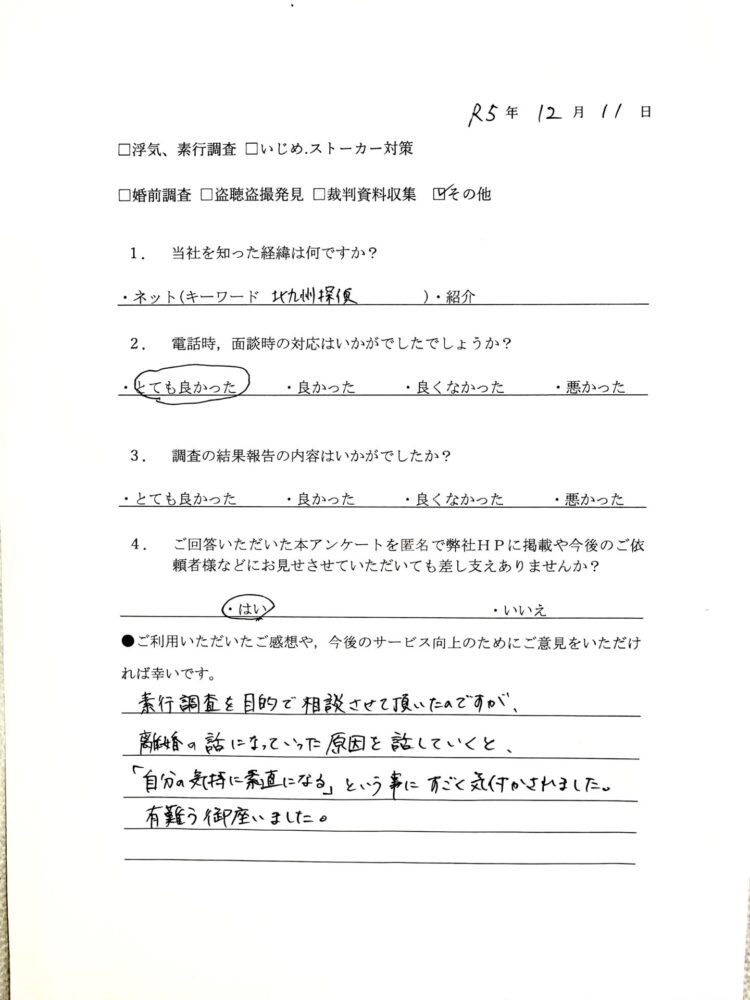 R5年 12月 11日
□浮気、素行調査 □いじめ.ストーカー対策
□婚前調査 □盗聴盗撮発見 □裁判資料収集 ☑その他
1． 当社を知った経緯は何ですか？
・ネット(キーワード 北九州探偵 )・紹介
2． 電話時，面談時の対応はいかがでしたでしょうか？
・とても良かった ・良かった ・良くなかった ・悪かった
3． 調査の結果報告の内容はいかがでしたか？
・とても良かった ・良かった ・良くなかった ・悪かった
4． ご回答いただいた本アンケートを匿名で弊社ＨＰに掲載や今後のご依
頼者様などにお見せさせていただいても差し支えありませんか？
・はい ・いいえ
●ご利用いただいたご感想や，今後のサービス向上のためにご意見をいただけ
れば幸いです。
素行調査を目的で相談させて頂いたのですが、
離婚の話になっていった原因を話していくと、
「自分の気持に素直になる」という事にすごく気付かされました。
有難う御座いました。